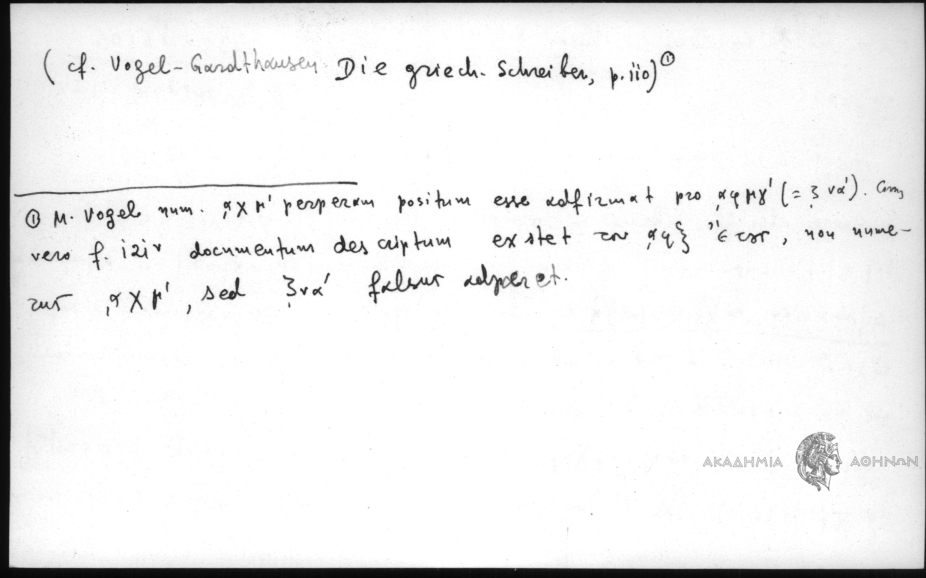 ( cf. Vogel-Gardthausen Die griech. Schreiber, p. 110) ①
① M. Vogel num. ͵αχμʹ perperam positum esse adfirmat pro ͵αφμγʹ (= ͵ζναʹ). Cum
vero f. 121v documentum descriptum exstet του ἔτους, non nume-
rus ͵αχμʹ, sed ͵ζναʹ falsus adparet.
ΑΚΑΔΗΜΙΑ ΑΘΗΝΩΝ